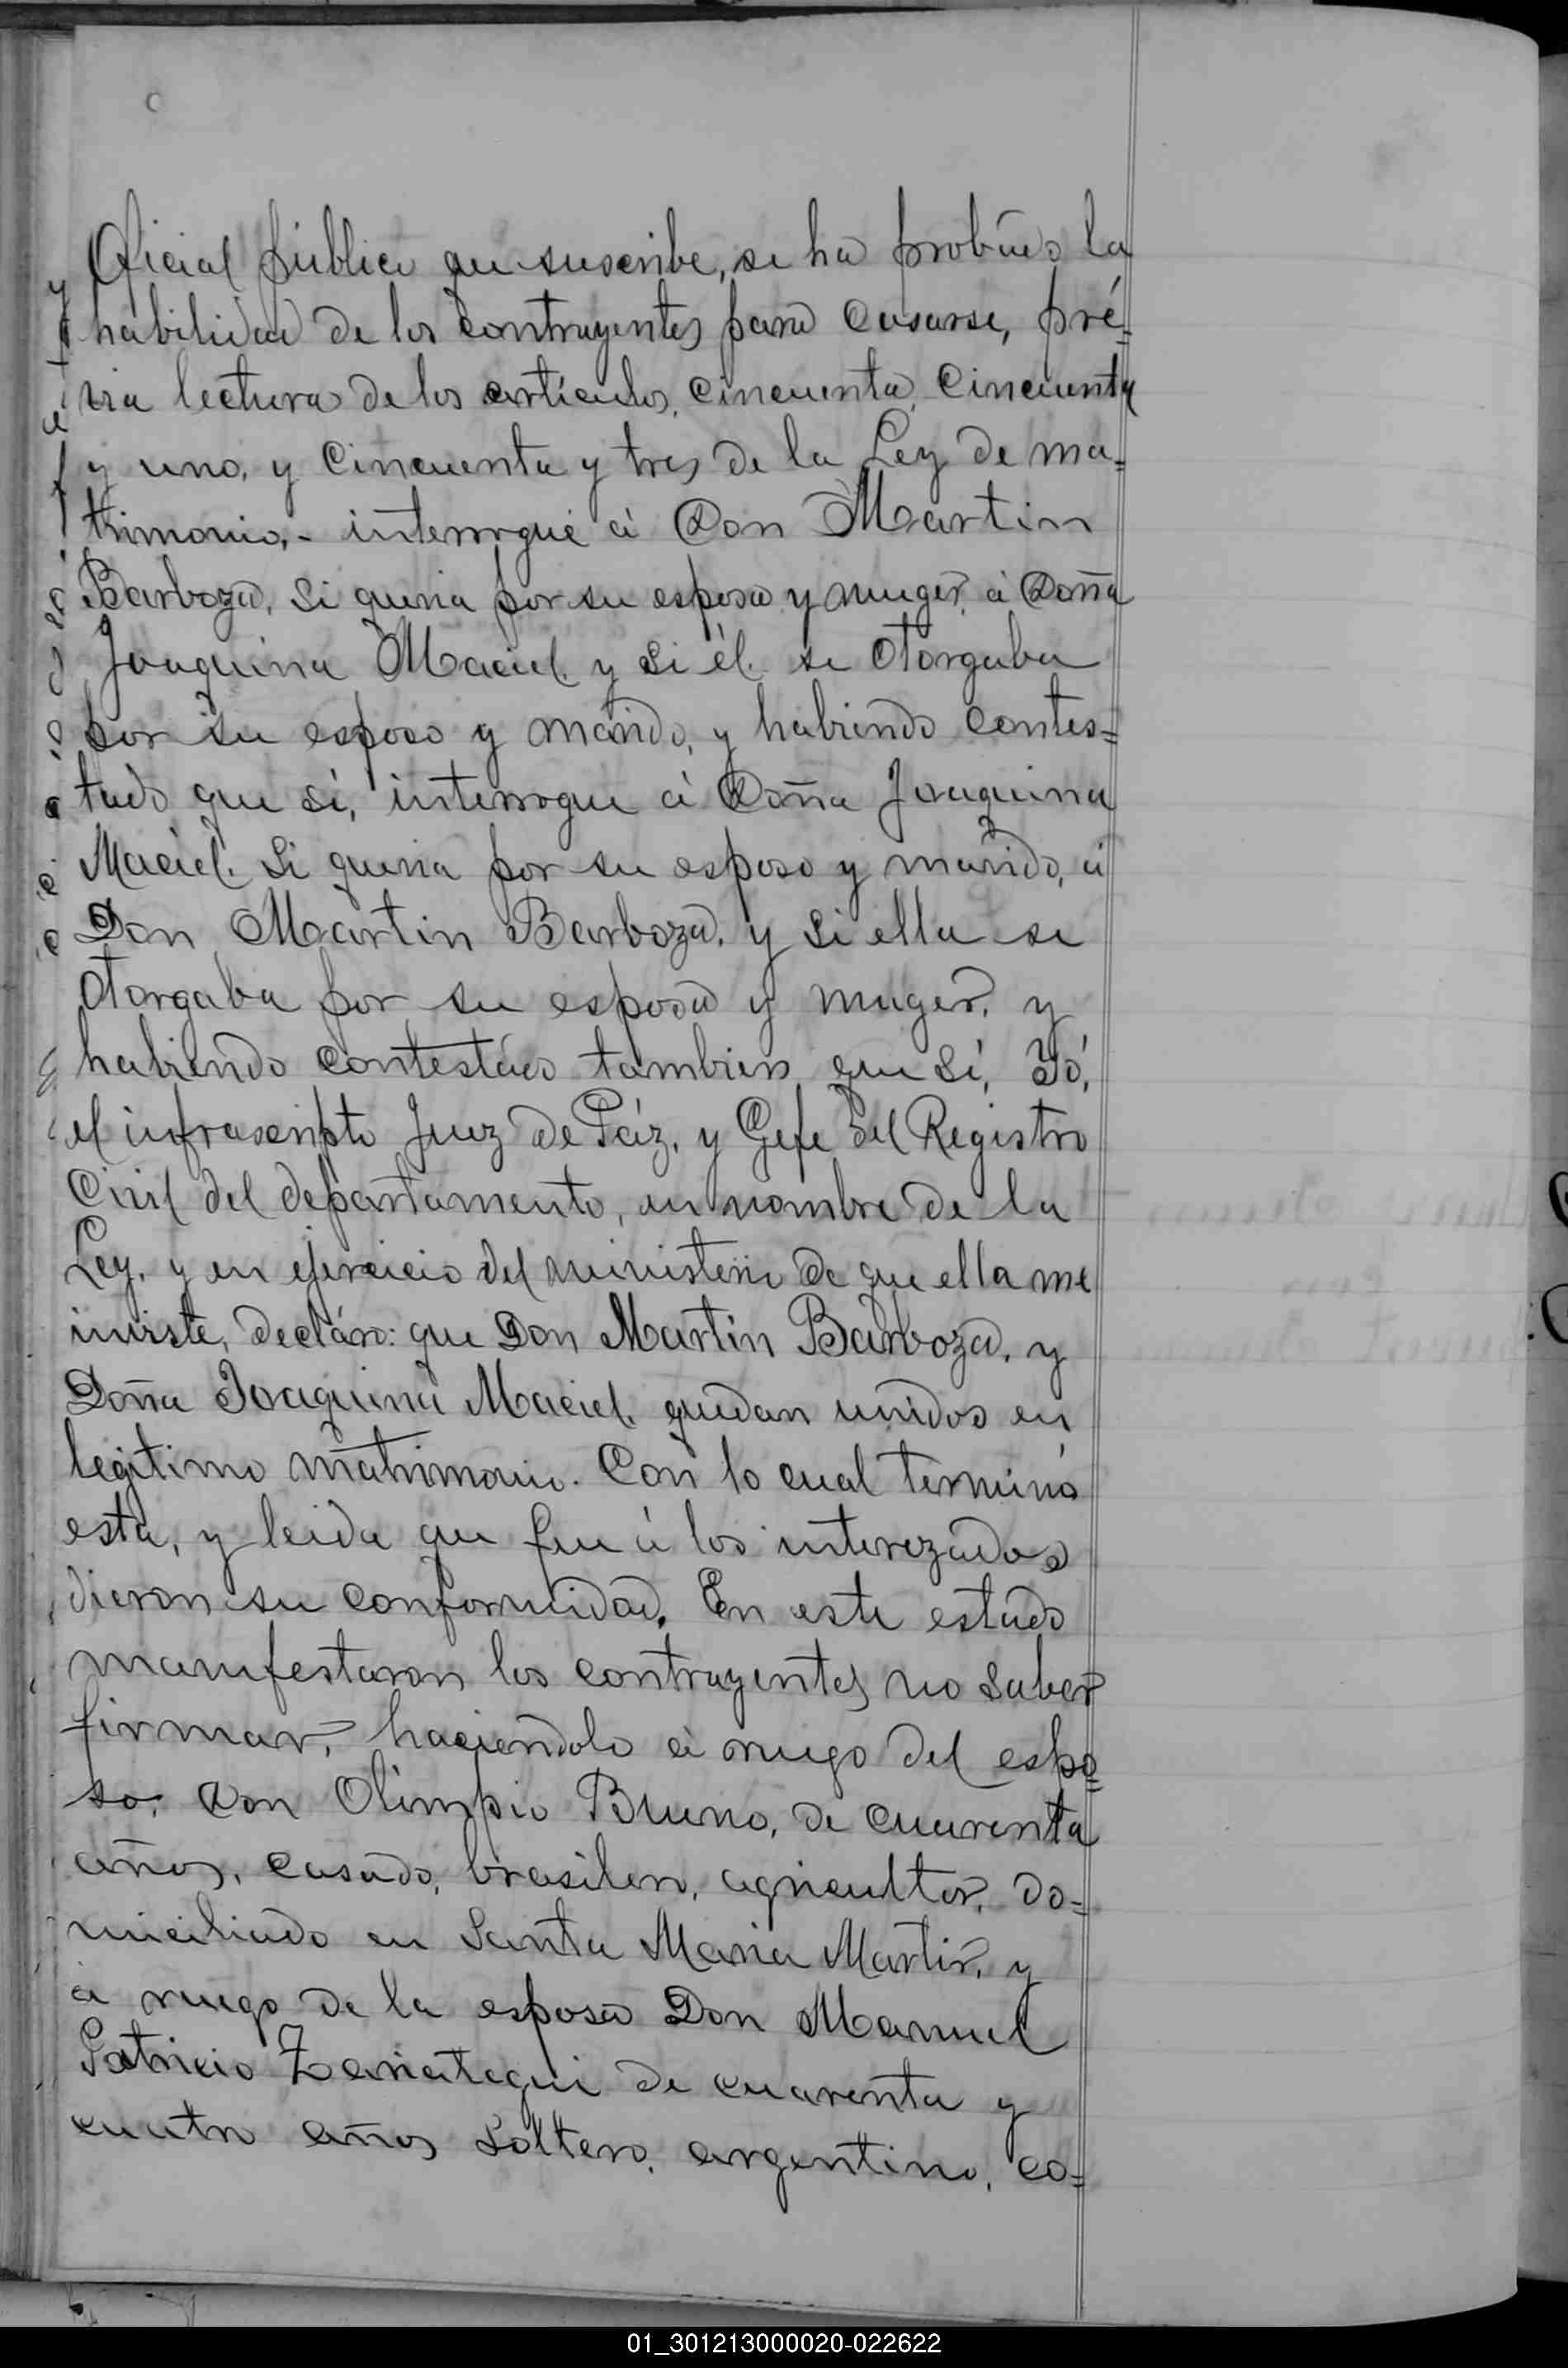 Oficial público que suscribe, se ha probado la
habilidad de los contrayentes para casarse, pré=
via lectura de los artículos, cincuenta, cincuenta
y uno, y cincuenta y tres de la Ley de ma=
trimonio,- interrogué á Don Martin
Barboza, si queria por su esposa y muger, á Doña
Joaquina Maciel, y si él se otorgaba
por su esposo y marido, y habiendo contes=
tado que sí, interrogue á Doña Joaquina
Maciel, si queria por su esposo y marido, á
Don Martin Barboza, y si ella se
otorgaba por su esposa y muger, y
habiendo contestado tambien que sí, Yó,
el infrascripto Juez de Páz, y Gefe del Registro
Civil del departamento, en nombre de la
Ley, y en ejercicio del ministerio de que ella me
inviste, decláro: que Don Martin Barboza, y
Doña Joaquina Maciel, quedan unidos en
legítimo matrimonio. Con lo cual terminó
esta, y leida que fue á los interezados
dieron su conformidad. En este estado
manifestaron los contrayentes no saber
firmar, haciendolo á ruego del espo=
so, Don Olimpio Bruno, de cuarenta
años, casado, brasilero, agricultor, do=
miciliado en Santa Maria Martir, y
á ruego de la esposa Don Manuel
Patricio Zariategui de cuarenta y
cuatro años soltero, argentino, co=
01_301213000020-022622